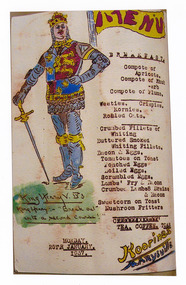 MENU
BREAKFAST.
Compote of
Apricots.
Compote of
Compote of Plums,
Weeties. Crispies,
Kornies,
Rolled Oats.
Crumbed Fillets of
Whiting
Buttered Smoked
Whiting Fillets,
Bacon & Eggs.
Tomatoes on Toast
Poached Eggs
Boiled Eggs,
Scrambled Eggs.
Lambs' Fry & Bacon
Crumbed Lambs Brains
& Bacon
Sweetcorn on Toast
Mushroom Fritters
TEA, COFFEE,
King Henry V. B's
with a second course
MONDAY,
JANUARY,
Keep on
Carving